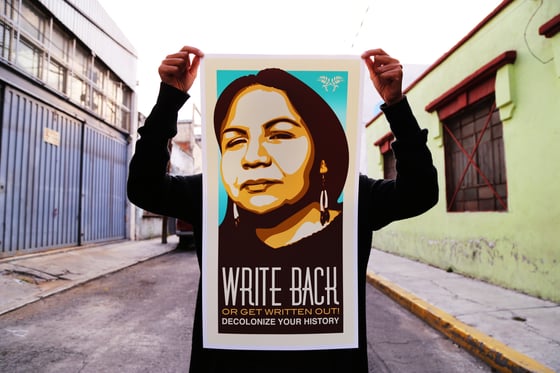 WRITE BACK
OR GET WRITTEN OUT!
DECOLONIZE YOUR HISTORY